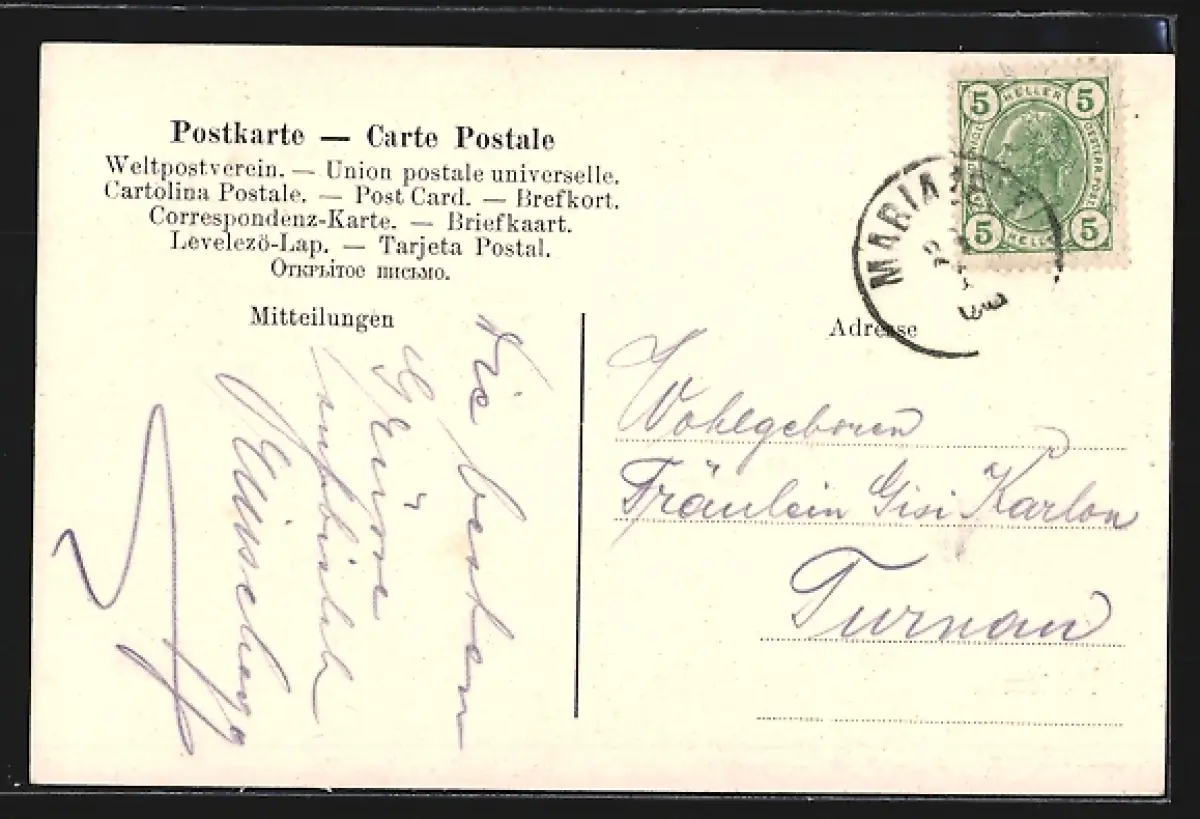 Postkarte — Carte Postale
Weltpostverein. — Union postale universelle.
Cartolina Postale. — Post Card. — Brefkort.
Correspondenz-Karte. — Briefkaart.
Levelezö-Lap. — Tarjeta Postal.
Открытое письмо.
Mitteilungen
Die besten
Grüsse
Adresse
Wohlgeboren
Fräulein Gisi Karlon
Turnau
5 HELLER 5
5 HELLER 5
MARIA